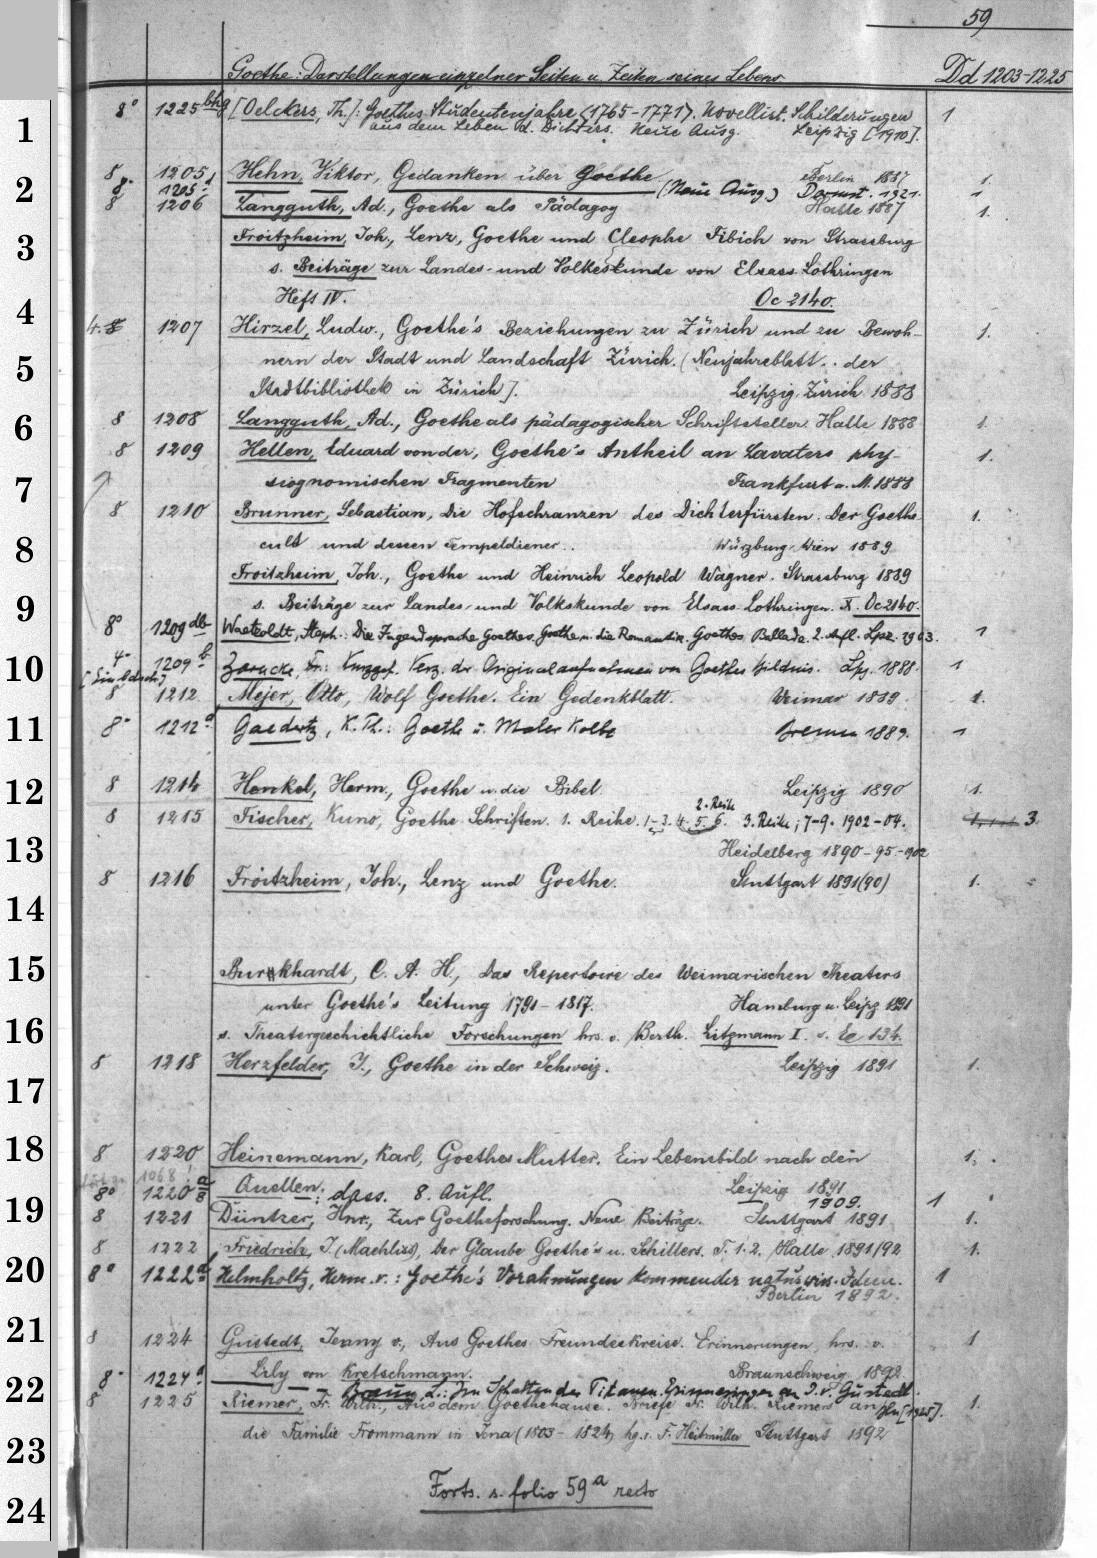 59
Goethe: Darstellungen einzelner Seiten u. Zeiten seines Lebens Dd 1203-1225
1
8° 1225 bhg [Oelckers, Th.]: Goethes Studentenjahre <1765-1771>. Novellist. Schilderungen 1
aus dem Leben d. Dichters. Neue Ausg. Leipzig [1910].
2
8 1205 Hehn, Viktor, Gedanken über Goethe Berlin 1887 1.
8° 1205 a (Neue Ausg.) Darmst. 1921. 1
8 1206 Langguth, Ad., Goethe als Pädagog Halle 1887 1.
3
Froitzheim, Joh., Lenz, Goethe und Cleophe Fibich von Strassburg
s. Beiträge zur Landes- und Volkeskunde von Elsass Lothringen
4
Heft IV. Oc 2140.
4. 1207 Hirzel, Ludw., Goethe's Beziehungen zu Zürich und zu Bewoh- 1.
5
nern der Stadt und Landschaft Zürich. (Neujahrsblatt . . der
Stadtbibliothek in Zürich]. Leipzig. Zürich 1888
6
8 1208 Langguth, Ad., Goethe als pädagogischer Schriftsteller. Halle 1888 1.
8 1209 Hellen, Eduard von der, Goethe's Antheil an Lavaters phy- 1.
7
siognomischen Fragmenten Frankfurt a. M. 1888
8 1210 Brunner, Sebastian, Die Hofschranzen des Dichterfürsten. Der Goethe- 1.
8
cult und dessen Tempeldiener . . Würzburg-Wien 1889
Froitzheim, Joh., Goethe und Heinrich Leopold Wagner. Strassburg 1889
9
s. Beiträge zur Landes- und Volkskunde von Elsass-Lothringen. X. Oc 2140.
8° 1209 db Waetzoldt, Steph.: Die Jugendsprache Goethes. Goethe u. die Romantik. Goethes Ballade. 2. Aufl. Lpz. 1903. 1
10
4° 1209 b Zarncke, Fr.: Kurzgef. Verz. der Originalaufnahmen von Goethes Bildnis. Lpz. 1888. 1
8 1212 Mejer, Otto, Wolf Goethe. Ein Gedenkblatt. Weimar 1889 1.
11
8° 1212 a Gaedertz, K. Th.: Goethe u. Maler Kolbe Bremen 1889. 1
12
8 1214 Henkel, Herm., Goethe u. die Bibel. Leipzig 1890 1.
2. Reihe
8 1215 Fischer, Kuno, Goethe-Schriften. 1. Reihe. 1-3. 4. 5. 6. 3. Reihe; 7-9. 1902-04. 3.
13
Heidelberg 1890-95-1902
8 1216 Froitzheim, Joh., Lenz und Goethe. Stuttgart 1891(90) 1.
14
15
Burkhardt, C. A. H., Das Repertoire des Weimarischen Theaters
unter Goethe's Leitung 1791-1817. Hamburg u. Leipz. 1891
16
s. Theatergeschichtliche Forschungen hrs. v. Berth. Litzmann I. v. Ee 134.
8 1218 Herzfelder, J., Goethe in der Schweiz. Leipzig 1891 1.
17
18
8 1220 Heinemann, Karl, Goethes Mutter. Ein Lebensbild nach den 1.
1068
8° 1220 a Quellen. : dass. 8. Aufl. Leipzig 1891
1909. 1
19
8 1221 Düntzer, Hnr., Zur Goetheforschung. Neue Beiträge. Stuttgart 1891 1.
8 1222 Friedrich, J. (Maehliss), der Glaube Goethe's u. Schillers. T. 1. 2. Halle 1891/92 1.
20
8° 1222 a Helmholtz, Herm. v.: Goethe's Vorahnungen kommender naturwiss. Ideen. 1
Berlin 1892.
21
8 1224 Gustedt, Jenny v., Aus Goethes Freundeskreise. Erinnerungen, hrs. v. 1
Lily von Kretschmann. Braunschweig 1892
22
8° 1224 a Braun, L.: Im Schatten der Titanen. Erinnerungen an J. v. Gustedt.
8 1225 Riemer, Fr. Wilh., Aus dem Goethehause. Briefe Fr. Wilh. Riemers an 1.
Bln [1925].
23
die Familie Frommann in Jena (1803-1824) hg. v. F. Heitmüller Stuttgart 1892
24
Forts. s. folio 59 a recto